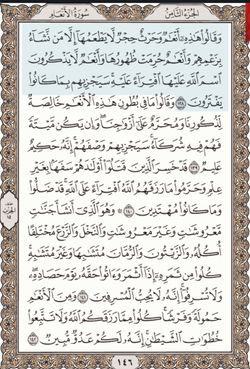 الجزء الثامن
سورة الأنعام
وَقَالُوا۟ هَٰذِهِۦٓ أَنْعَٰمٌ وَحَرْثٌ حِجْرٌ لَّا يَطْعَمُهَآ إِلَّا مَن نَّشَآءُ
بِزَعْمِهِمْ وَأَنْعَٰمٌ حُرِّمَتْ ظُهُورُهَا وَأَنْعَٰمٌ لَّا يَذْكُرُونَ
ٱسْمَ ٱللَّهِ عَلَيْهَا ٱفْتِرَآءً عَلَيْهِ سَيَجْزِيهِم بِمَا كَانُوا۟
يَفْتَرُونَ ١٣٨ وَقَالُوا۟ مَا فِى بُطُونِ هَٰذِهِ ٱلْأَنْعَٰمِ خَالِصَةٌ
لِّذُكُورِنَا وَمُحَرَّمٌ عَلَىٰٓ أَزْوَٰجِنَا وَإِن يَكُن مَّيْتَةً
فَهُمْ فِيهِ شُرَكَآءُ سَيَجْزِيهِمْ وَصْفَهُمْ إِنَّهُۥ حَكِيمٌ
عَلِيمٌ ١٣٩ قَدْ خَسِرَ ٱلَّذِينَ قَتَلُوٓا۟ أَوْلَٰدَهُمْ سَفَهًۢا بِغَيْرِ
عِلْمٍ وَحَرَّمُوا۟ مَا رَزَقَهُمُ ٱللَّهُ ٱفْتِرَآءً عَلَى ٱللَّهِ قَدْ ضَلُّوا۟
وَمَا كَانُوا۟ مُهْتَدِينَ ١٤٠ وَهُوَ ٱلَّذِىٓ أَنشَأَ جَنَّٰتٍ
مَّعْرُوشَٰتٍ وَغَيْرَ مَعْرُوشَٰتٍ وَٱلنَّخْلَ وَٱلزَّرْعَ مُخْتَلِفًا
أُكُلُهُۥ وَٱلزَّيْتُونَ وَٱلرُّمَّانَ مُتَشَٰبِهًا وَغَيْرَ مُتَشَٰبِهٍ
كُلُوا۟ مِن ثَمَرِهِۦٓ إِذَآ أَثْمَرَ وَءَاتُوا۟ حَقَّهُۥ يَوْمَ حَصَادِهِۦ
وَلَا تُسْرِفُوٓا۟ إِنَّهُۥ لَا يُحِبُّ ٱلْمُسْرِفِينَ ١٤١ وَمِنَ ٱلْأَنْعَٰمِ
حَمُولَةً وَفَرْشًا كُلُوا۟ مِمَّا رَزَقَكُمُ ٱللَّهُ وَلَا تَتَّبِعُوا۟
خُطُوَٰتِ ٱلشَّيْطَٰنِ إِنَّهُۥ لَكُمْ عَدُوٌّ مُّبِينٌ ١٤٢
١٤٦